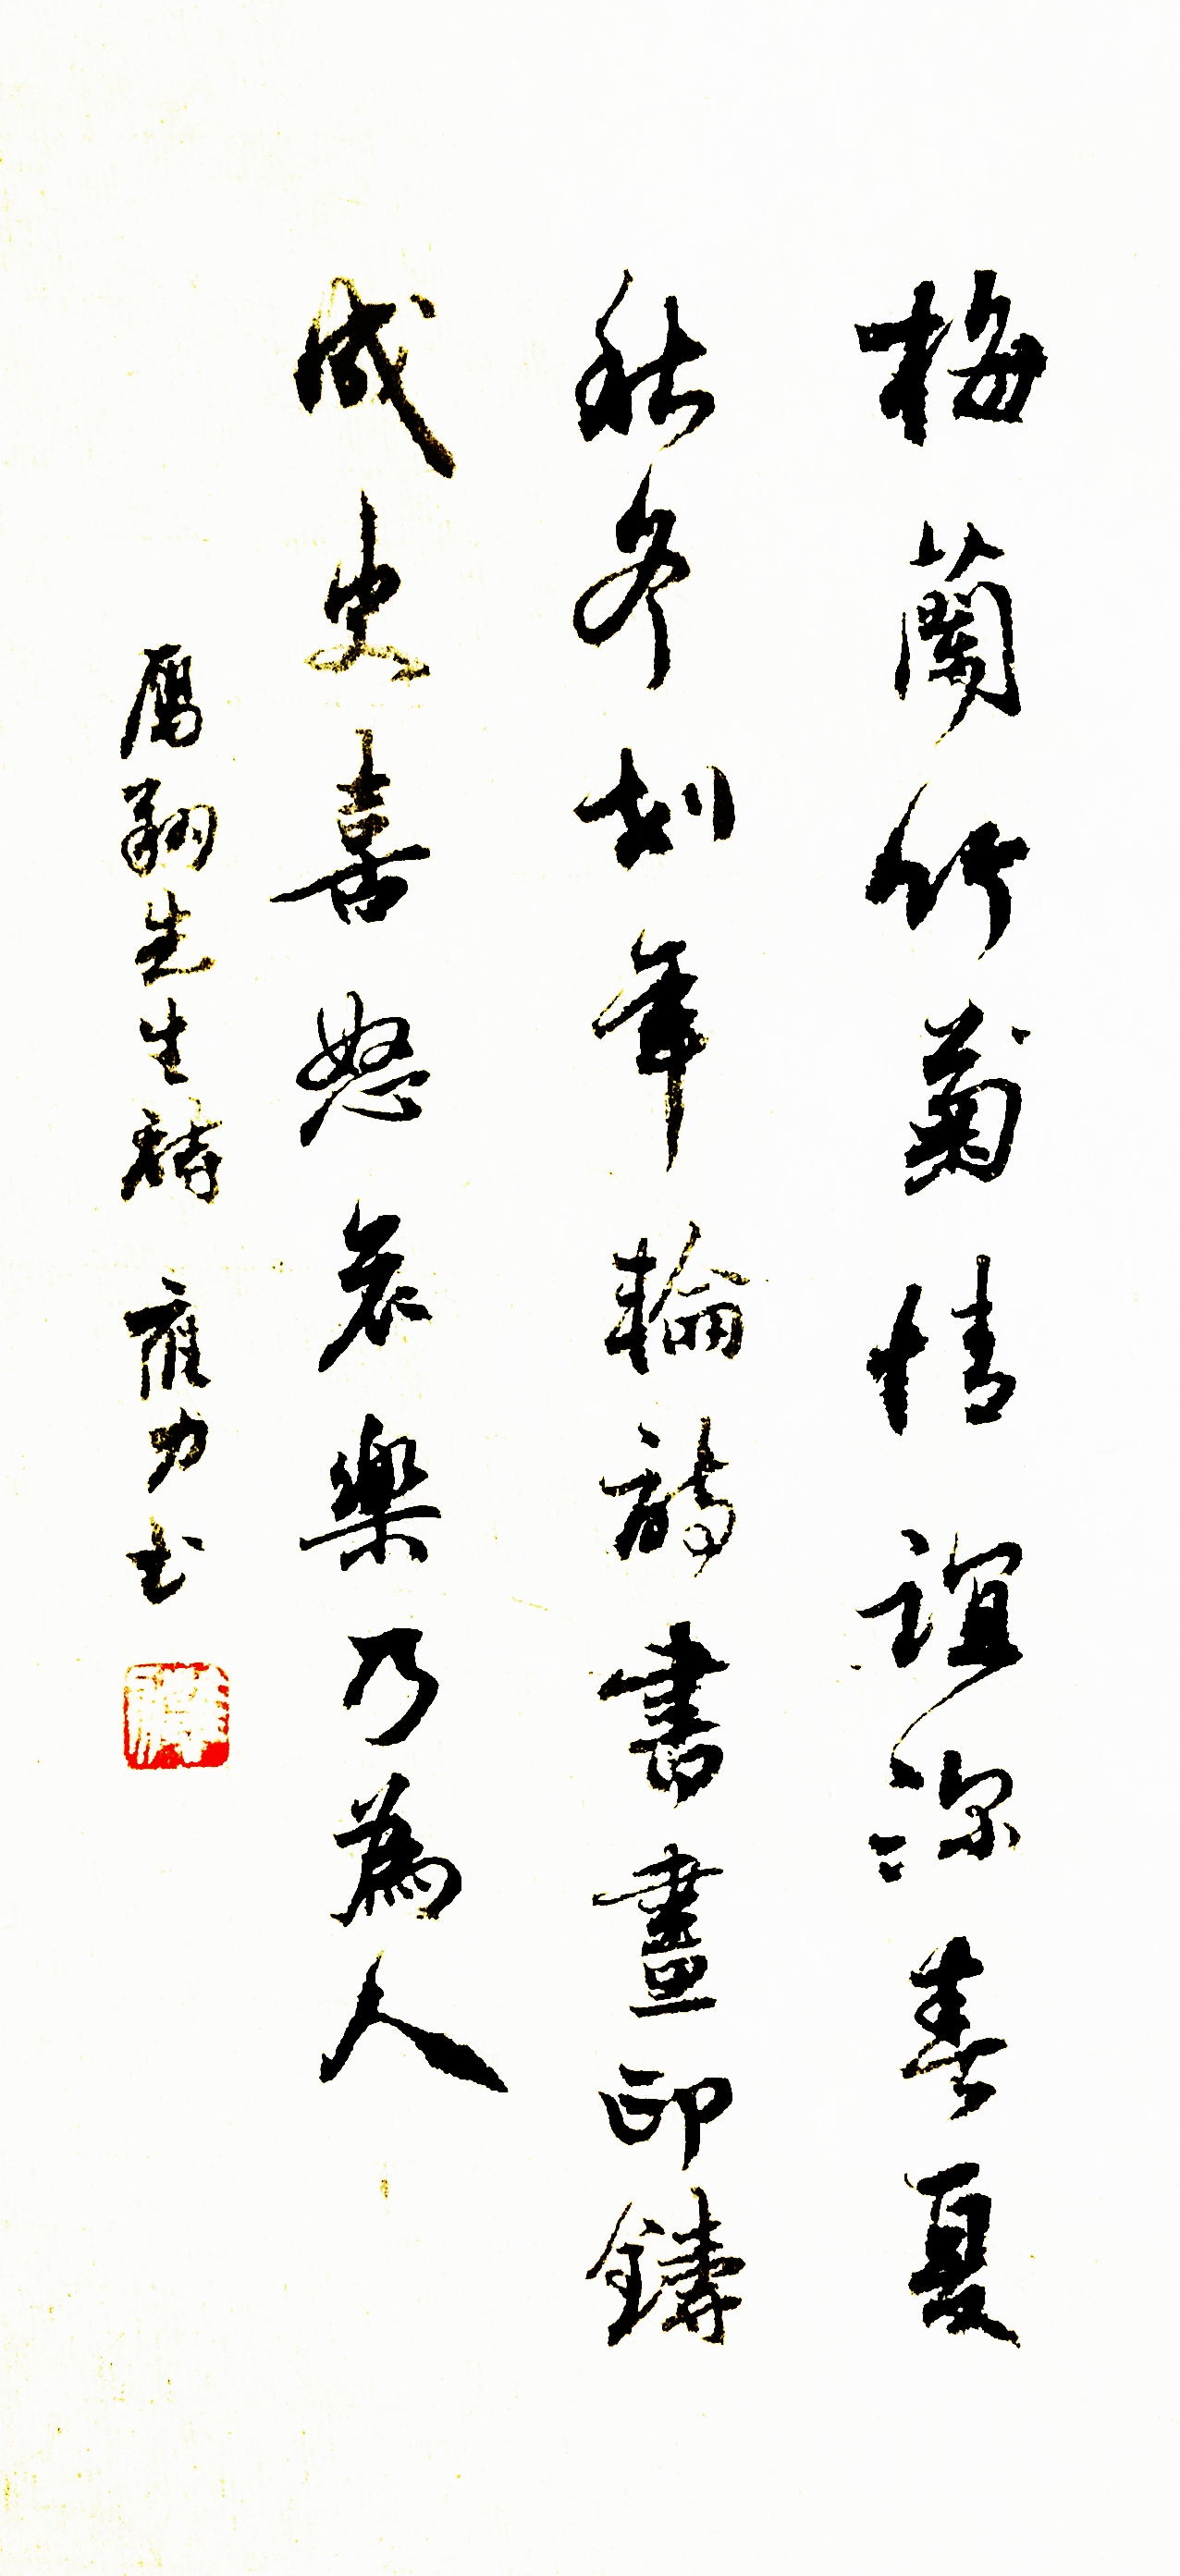 梅蘭竹菊情誼深春夏
秋冬刻年輪詩書畫印鑄
成史喜怒哀樂乃為人
鴈翔先生詩 雍力书